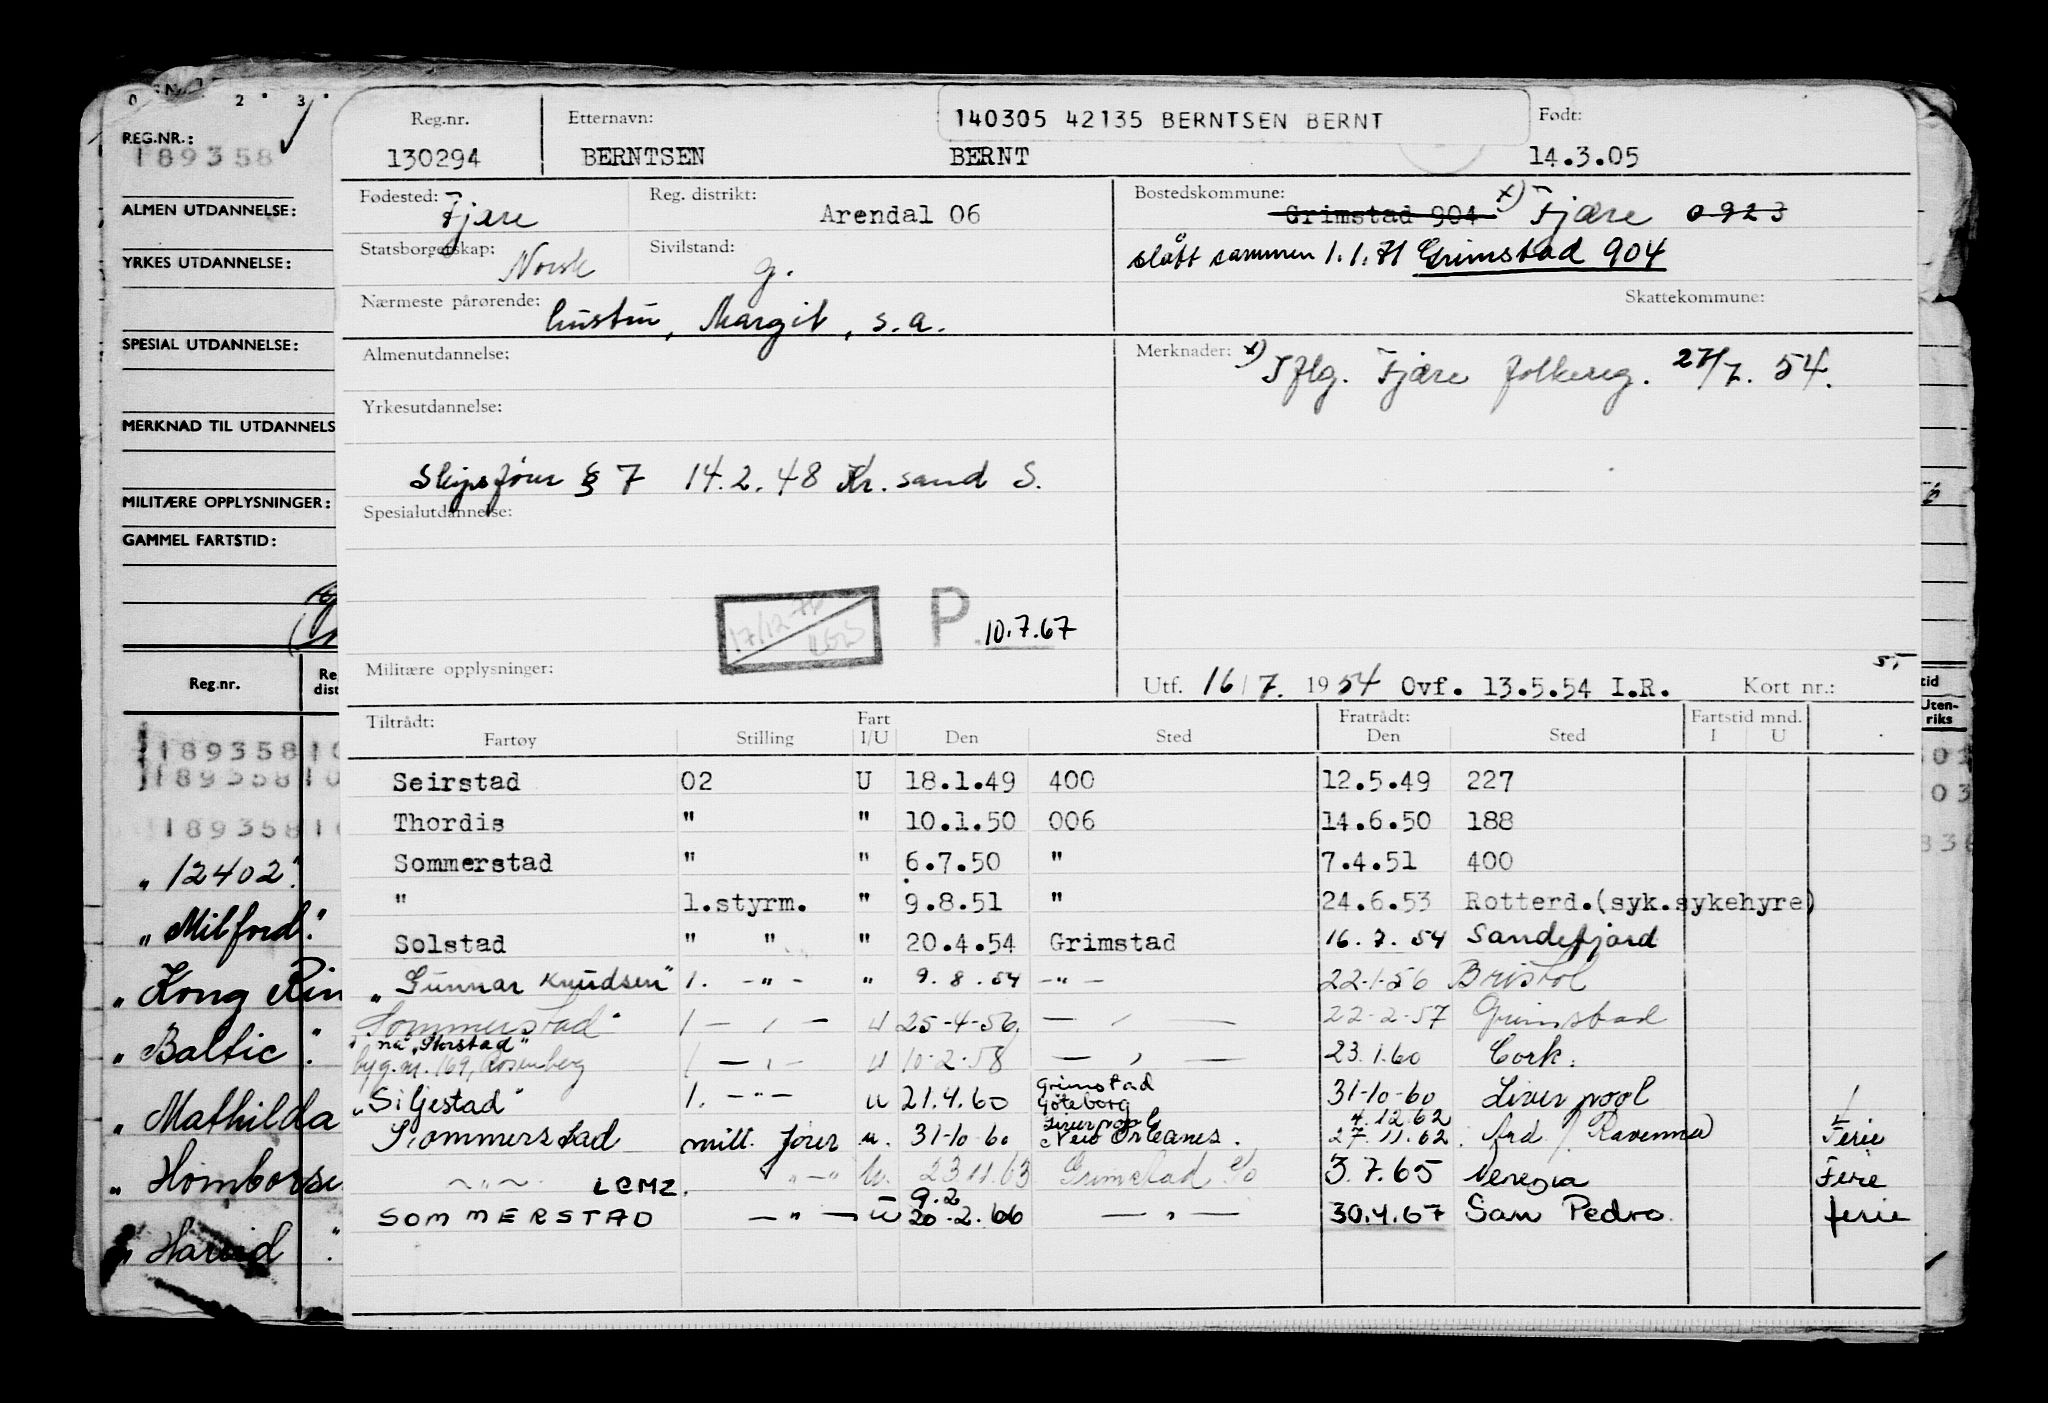 REG.NR.:
189358
ALMEN UTDANNELSE:
YRKES UTDANNELSE:
SPESIAL UTDANNELSE:
MERKNAD TIL UTDANNELS
MILITÆRE OPPLYSNINGER:
GAMMEL FARTSTID:
Reg.nr.
189358
189358
189358
"12402".
"Milford".
"Kong Rin
"Baltic".
"Mathilda
"Homborsu
Reg.nr. Etternavn: 140305 42135 BERNTSEN BERNT Født:
130294 BERNTSEN BERNT 14.3.05
Fødested: Fjære Reg. distrikt: Arendal 06 Bostedskommune: Grimstad 904 x) Fjære 0923
Statsborgerskap: Norsk Sivilstand: g. slått sammen 1.1.71 Grimstad 904
Nærmeste pårørende: hustru, Margit, s.a. Skattekommune:
Almenutdannelse: Merknader: x) Iflg. Fjære folkereg. 27/7. 54.
Yrkesutdannelse:
Skipsfører § 7 14.2.48 Kr. sand S.
Spesialutdannelse:
P. 10.7.67
Militære opplysninger: Utf. 16/7. 1954 Ovf. 13.5.54 I.R. Kort nr.: 5
Tiltrådt: Fart Fratrådt: Fartstid mnd.
Fartøy Stilling I/U Den Sted Den Sted I U
Seirstad 02 U 18.1.49 400 12.5.49 227
Thordis " " 10.1.50 006 14.6.50 188
Sommerstad " " 6.7.50 " 7.4.51 400
" 1.styrm. " 9.8.51 " 24.6.53 Rotterd.(syk.sykehyre)
Solstad " " " 20.4.54 Grimstad 16.7.54 Sandefjord
"Gunnar Knudsen" 1. -"- " 9.8.54 -"- 22-1-56 Bristol
Sommerstad" 1 - " - u 25-4-56 - " - 22-2-57 Grimstad
nå "Storstad"
byg.nr. 169, Rosenberg 1 - " - u 10-2-58 - " - 23.1.60 Cork.
"Siljestad" 1. -"- u 21.4.60 Grimstad Göteborg 31-10-60 Liverpool
Sommerstad midl. fører u. 31-10-60 Liverpool New Orleans. 4.12.62 27.11.62 Ard / Ravenna Ferie
-"- LCMZ. "-" U. 23 11.63 Grimstad 3.7.65 Venezia Ferie
9.2
SOMMERSTAD -"- U 20-2.66 - " - 30.4.67 San Pedro. ferie